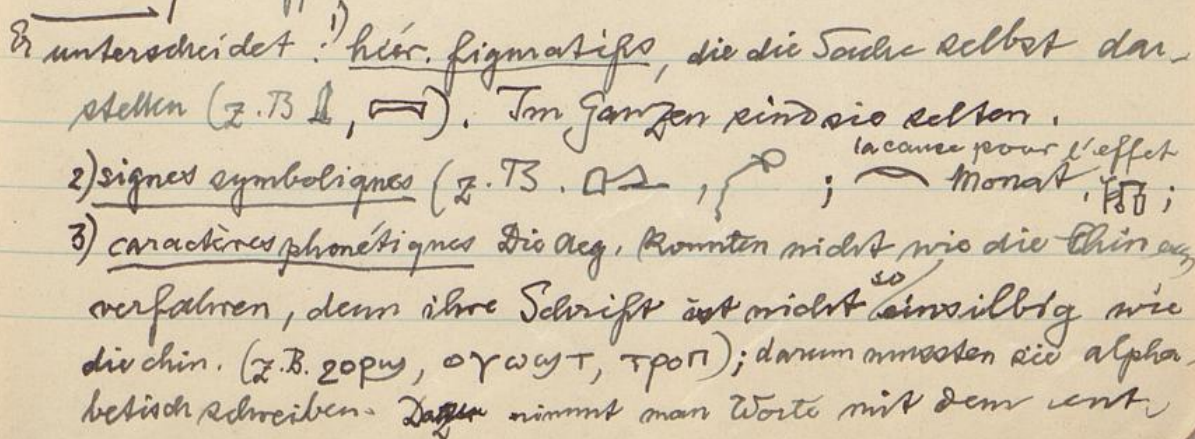 Er unterscheidet: 1) hiér. figmatifs, die die Sache selbst dar-
stellen (z. B 𓉘, 𓇯). Im Ganzen sind sie selten.
la cause pour l'effet
2) signes symboliques (z. B. , ; Monat, ;
3) caractères phonétiques Die Aeg. konnten nicht wie die Chin
so
verfahren, denn ihre Schrift ist nicht einsilbig wie
die chin. (z.B. ϩορϣ, ογωϣτ, τροπ); darum mussten sie alpha-
betisch schreiben. nimmt man Worte mit dem ent-